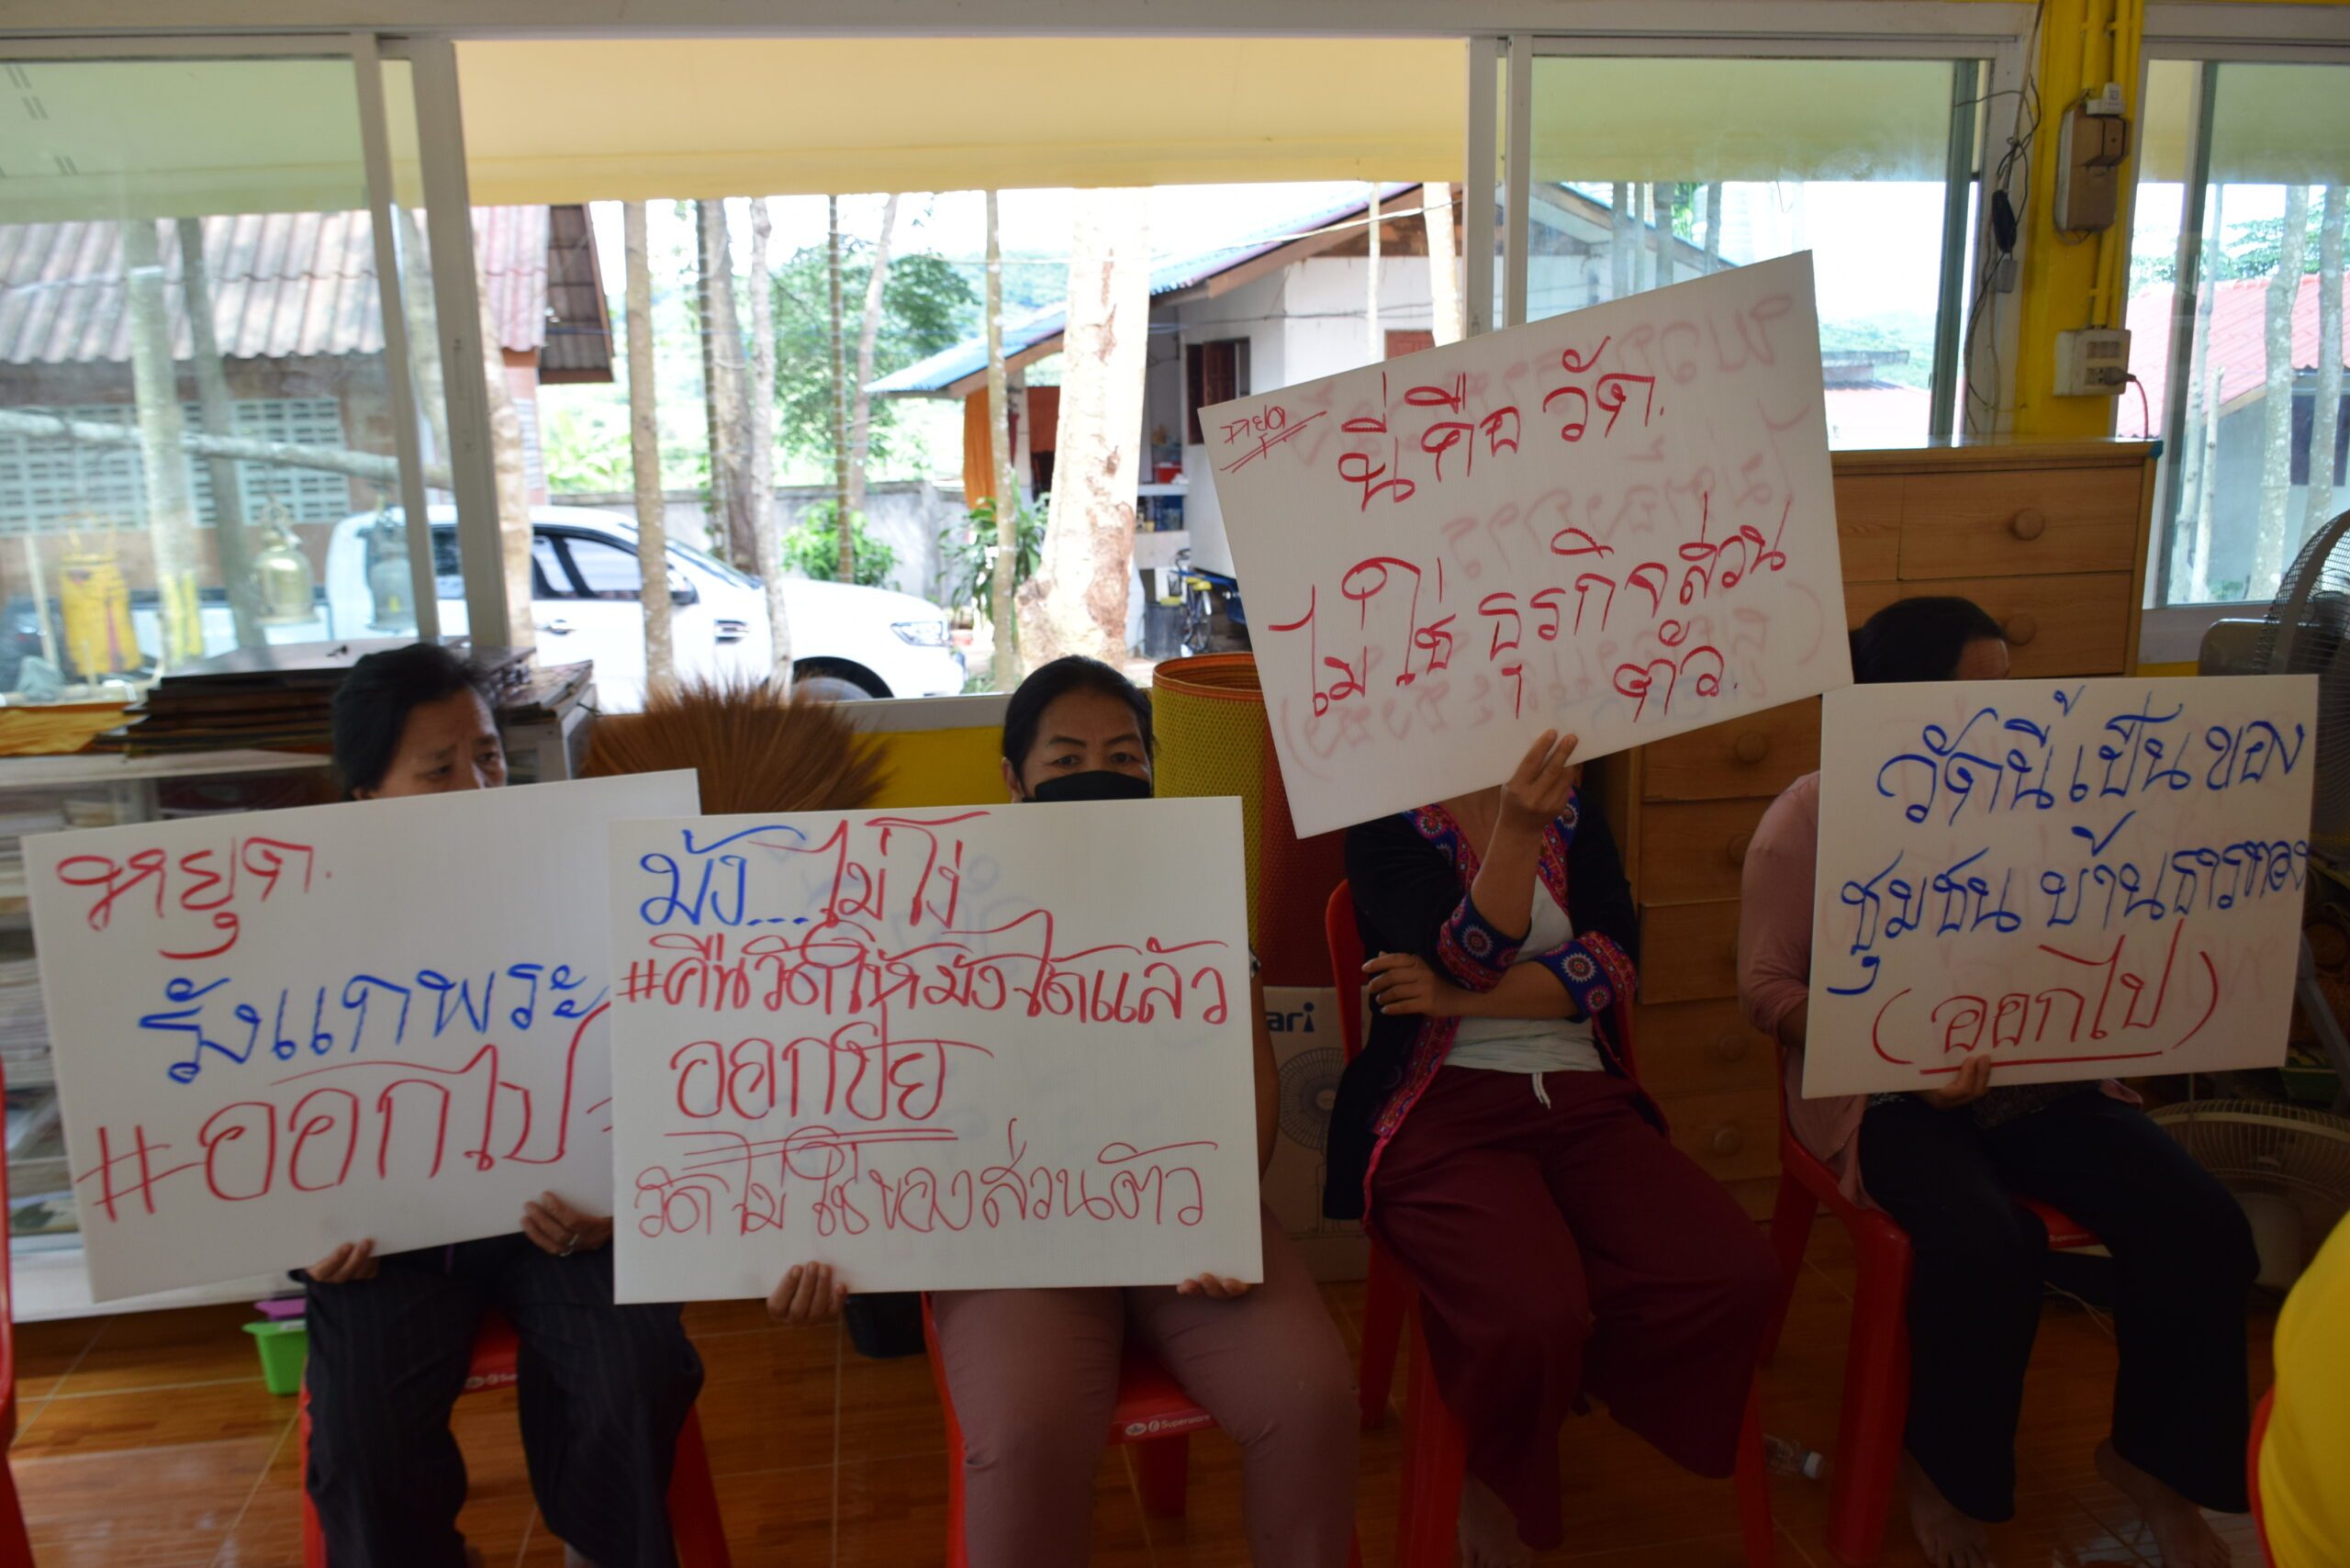 หยุด.
รังแกพระ
#ออกไป
ม้ง...ไม่โง่
#คืนวัดให้ม้งได้แล้ว
ออกปาย
วัดไม่ใช่ของส่วนตัว
หยุด
นี่คือวัด.
ไม่ใช่ธุรกิจส่วน
ตัว.
วัดนี้เป็นของ
ชุมชนบ้านธารทอง
(ออกไป)
Superware